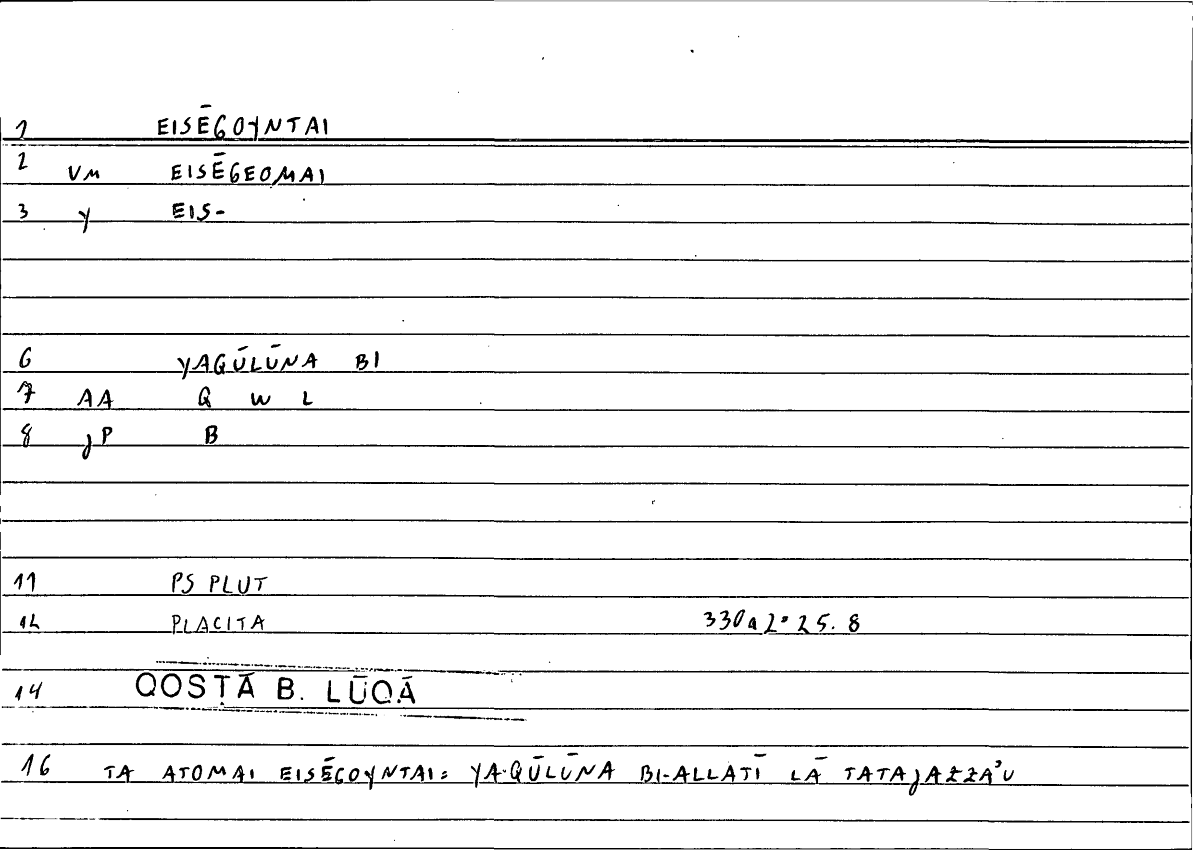 1 EISĒGOYNTAI
2 VM EISĒGEOMAI
3 Y EIS-
6 YAGŪLŪNA BI
7 AA Q W L
8 JP B
11 PS PLUT
12 PLACITA 330a2*25.8
14 QOSṬĀ B. LŪQĀ
16 TA ATOMAI EISĒGOYNTAI: YA-QŪLŪNA BI-ALLATĪ LĀ TATAJAZZA'U